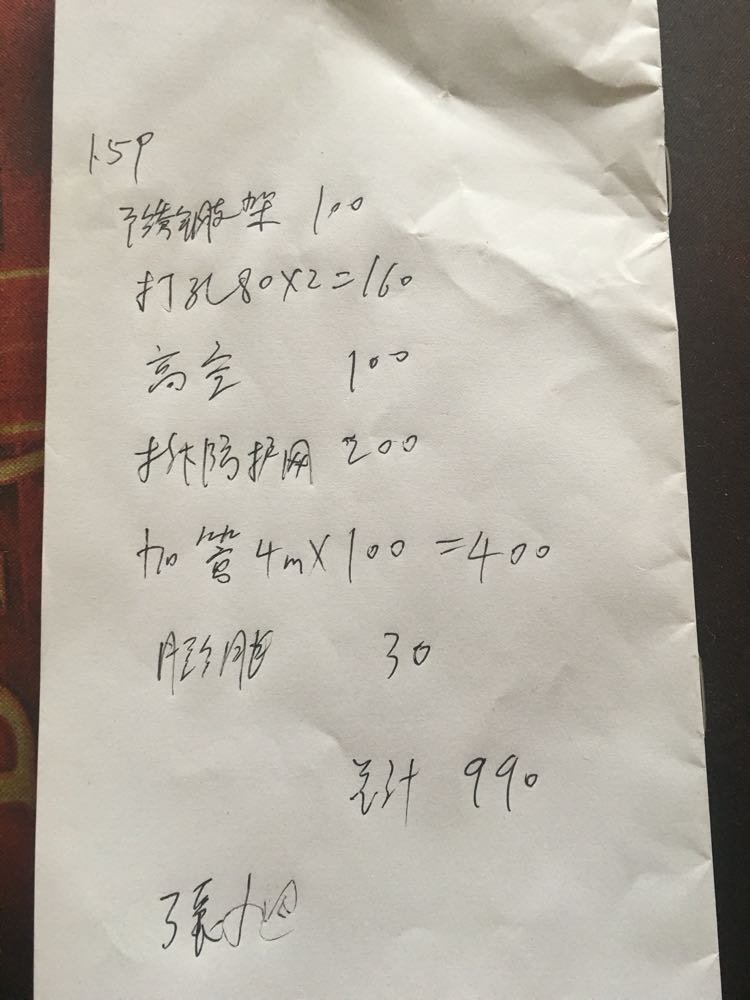 1.5P
架 100
打孔80X2=160
高空 100
拆防护网 200
加管4mX100=400
30
总计 990
張旭